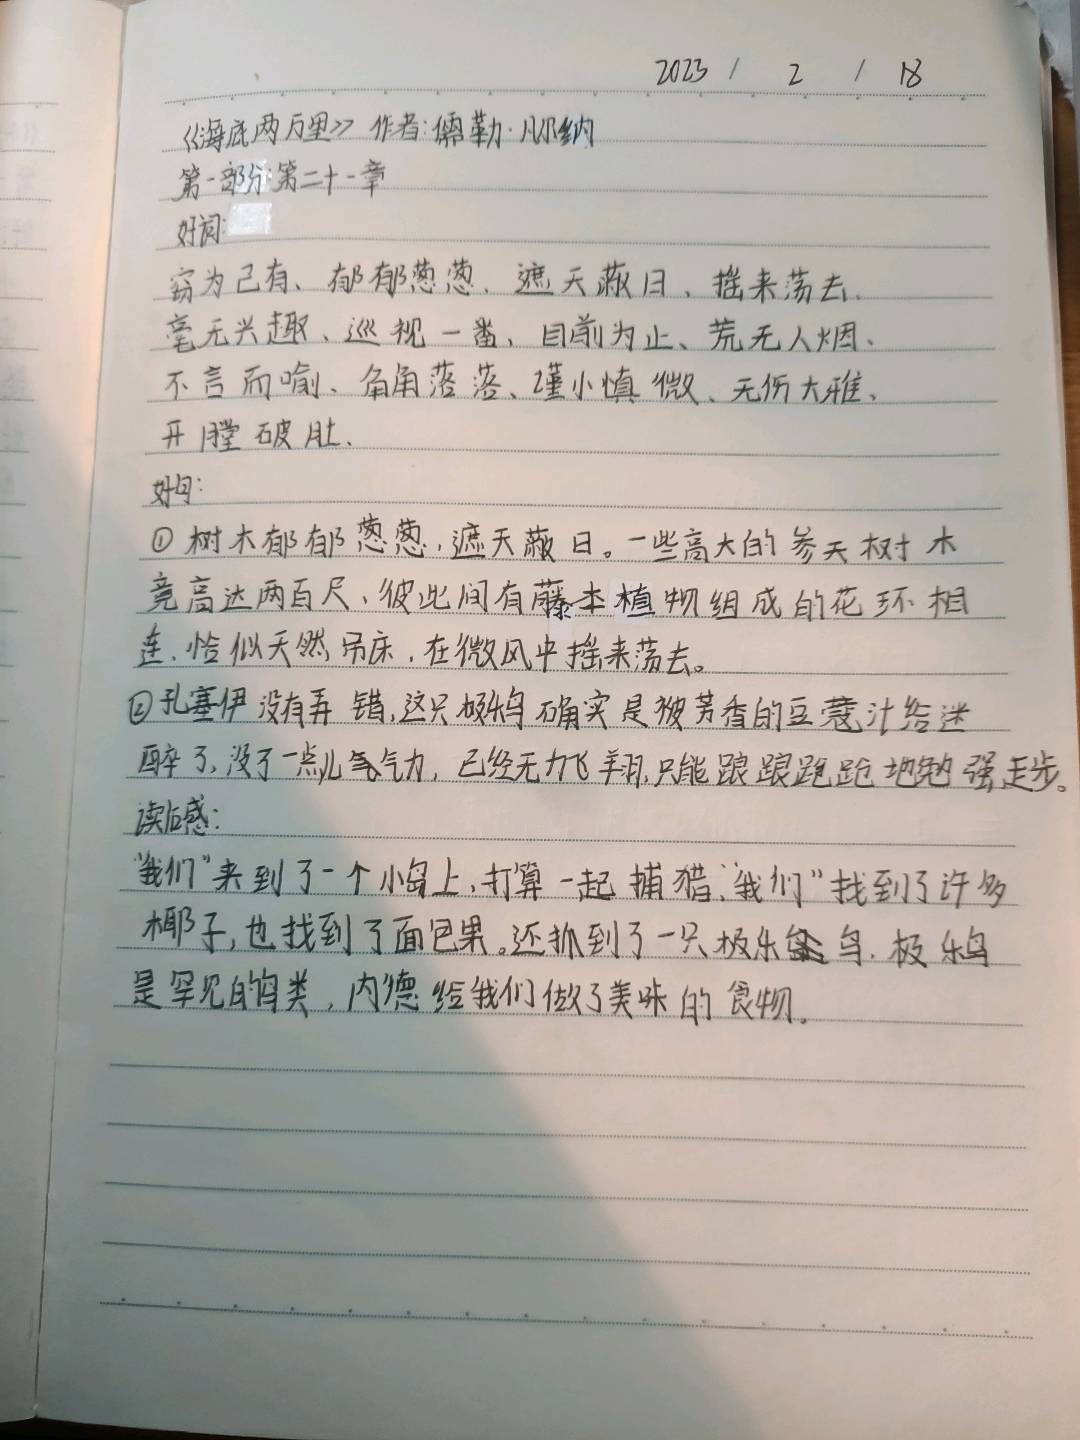 2023 / 2 / 18
《海底两万里》 作者:儒勒·凡尔纳
第一部分:第二十一章
好词:
窃为己有、郁郁葱葱、遮天蔽日、摇来荡去、
毫无兴趣、巡视一番、目前为止、荒无人烟、
不言而喻、角角落落、谨小慎微、无伤大雅、
开膛破肚、
好句:
①树木郁郁葱葱,遮天蔽日。一些高大的参天树木
竟高达两百尺、彼此间有藤本植物组成的花环相
连、恰似天然吊床,在微风中摇来荡去。
②孔塞伊没有弄错,这只极乐鸟确实是被芳香的豆蔻汁给迷
醉了,没了一点儿气力,已经无力飞翔,只能踉踉跄跄地勉强走步。
读后感:
“我们”来到了一个小岛上,打算一起捕猎,“我们”找到了许多
椰子,也找到了面包果。还抓到了一只极乐鸟、极乐鸟
是罕见的鸟类,内德给我们做了美味的食物。